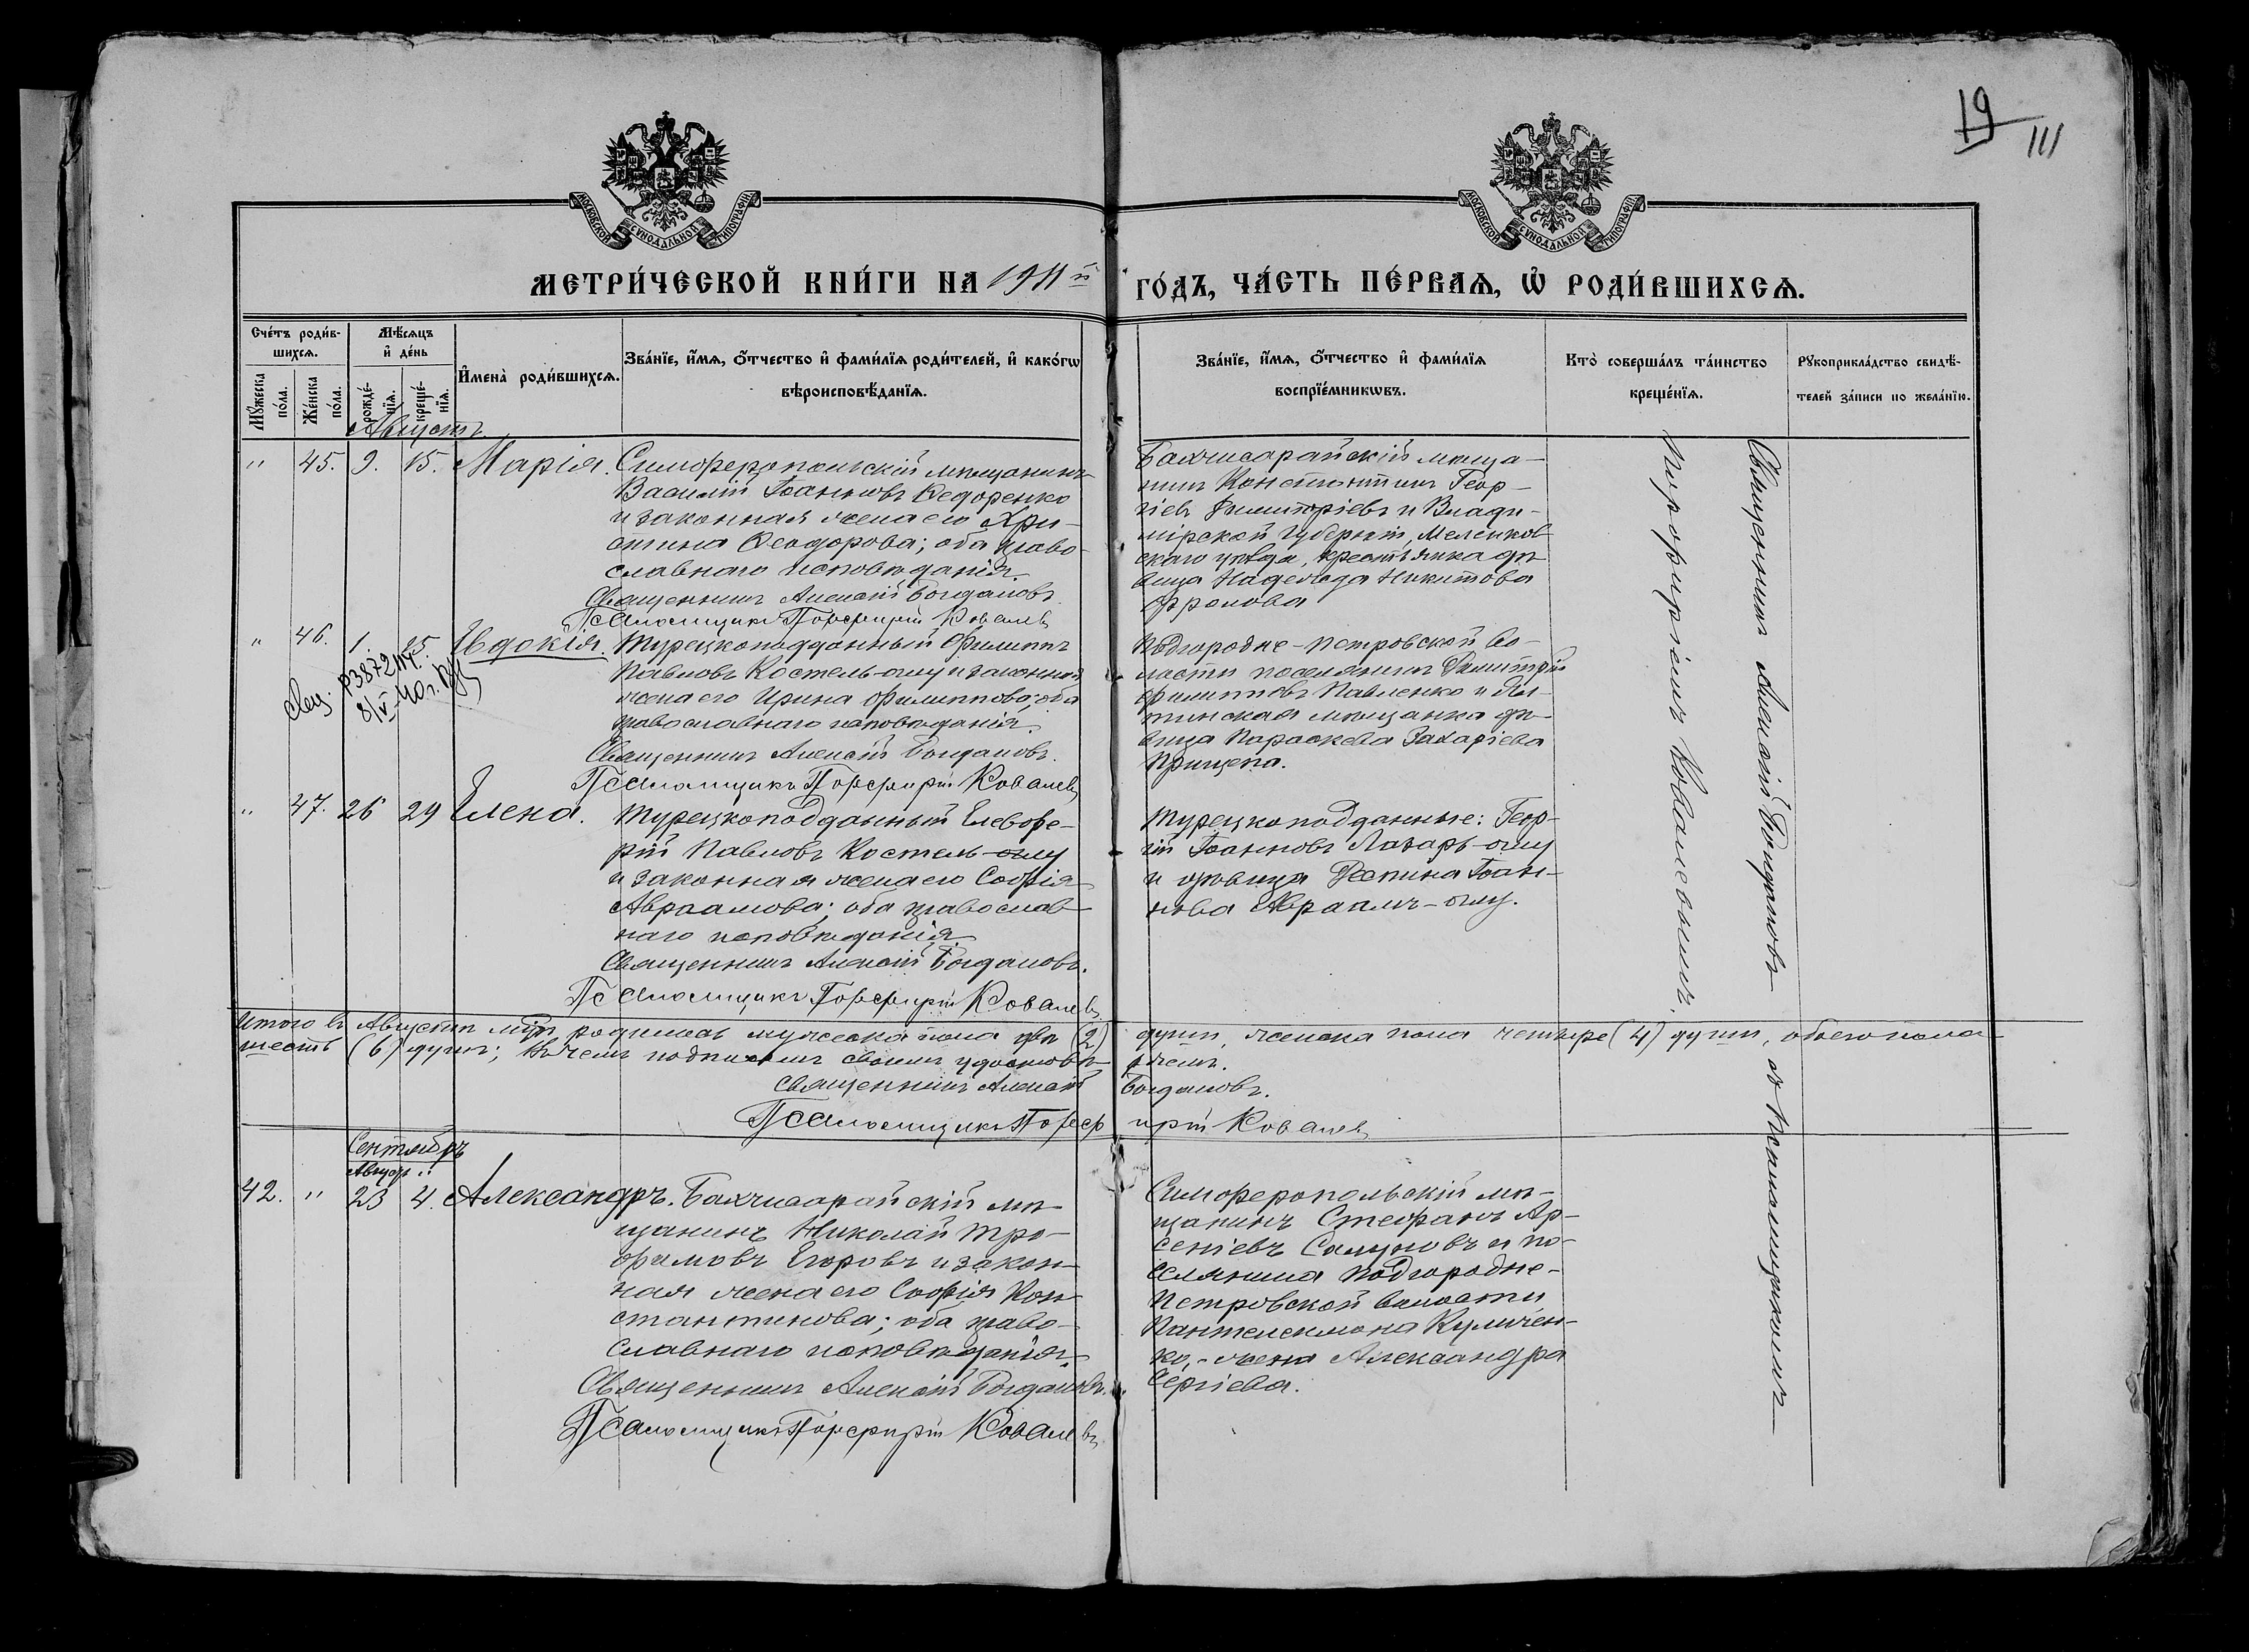 19
111
МОСКОВСКОЙ СѴНОДАЛЬНОЙ ТИПОГРАФІИ.
МОСКОВСКОЙ СѴНОДАЛЬНОЙ ТИПОГРАФІИ.
МЕТРИ́ЧЕСКОЙ КНИ́ГИ НА 1911й ГО́ДЪ, ЧА́СТЬ ПЕ́РВАѦ, Ѡ РОДИ́ВШИХСѦ.
Сче́тъ роди́в-
шихсѧ.
Мꙋ́жеска
по́ла.
Же́нска
по́ла.
Мѣ́сѧцъ
и҆ де́нь
рожде́-
нїѧ.
креще́-
нїѧ.
И҆мена̀ роди́вшихсѧ.
Зва́нїе, и҆́мѧ, ѻ҆́тчество и҆ фами́лїѧ роди́телей, и҆ како́гѡ
вѣроисповѣ́данїѧ.
Зва́нїе, и҆́мѧ, ѻ҆́тчество и҆ фами́лїѧ
воспрїе́мникѡвъ.
Кто̀ соверша́лъ та́инство
креще́нїѧ.
Рꙋкоприкла́дство свидѣ́-
телей за́писи по жела́нїю.
Августъ.
" 45. 9. 15. Марія. Симферопольскій мѣщанинъ
Василій Іоанновъ Ѳедоренко
и законная жена его Хри-
стина Ѳеодорова; оба право-
славнаго исповѣданія.
Священникъ Алексій Богдановъ
Псаломщикъ Порфирій Ковалевъ
Бахчисарайскій мѣща-
нинъ Константинъ Геор-
гіевъ Димитріевъ и Влади-
мірской губерніи, Меленков
скаго уѣзда, крестьянка дѣ-
вица Надежда Никитова
Фролова
" 46. 1. 15. Евдокія. Турецкоподданный Филиппъ
Павловъ Костель-оглу и законная
жена его Ирина Филиппова; оба
православнаго исповѣданія.
Священникъ Алексій Богдановъ.
Псаломщикъ Порфирій Ковалевъ
8/V-40г.
Подгородне-Петровской во-
лости поселянинъ Димитрій
Филипповъ Павленко и Ял-
тинская мѣщанка дѣ-
вица Параскева Захаріева
Прищепа.
" 47. 26 29 Елена. Турецкоподданный Елевфе-
рій Павловъ Костель-оглу
и законная жена его Софія
Авраамова; оба православ-
наго исповѣданія.
Священникъ Алексій Богдановъ.
Псаломщикъ Порфирій Ковалевъ
Турецкоподданные: Геор-
гій Іоанновъ Лазарь-оглу
и дѣвица Деспина Іоан-
нова Авраамъ-оглу.
Итого въ Августѣ мцѣ родилось мужеска пола двѣ (2) души, женска пола четыре (4) души, обоего пола
шесть (6) душъ; въ чемъ подписомъ своимъ удостовѣряемъ.
Священникъ Алексій Богдановъ.
Псаломщикъ Порфирій Ковалевъ
Сентябрь
Август.
42. " 23 4. Александръ. Бахчисарайскій мѣ-
щанинъ Николай Тро-
фимовъ Егоровъ и закон-
ная жена его Софія Кон-
стантинова; оба право-
славнаго исповѣданія.
Священникъ Алексій Богдановъ.
Псаломщикъ Порфирій Ковалевъ
Симферопольскій мѣ-
щанинъ Стефанъ Ар-
сеніевъ и по-
селянина Подгородне-
Петровской волости
Пантелеимона Куличен-
ко, - жена Александра
Сергіева.
Священникъ Алексій Богдановъ съ Псаломщикомъ
Порфиріемъ Ковалевымъ.